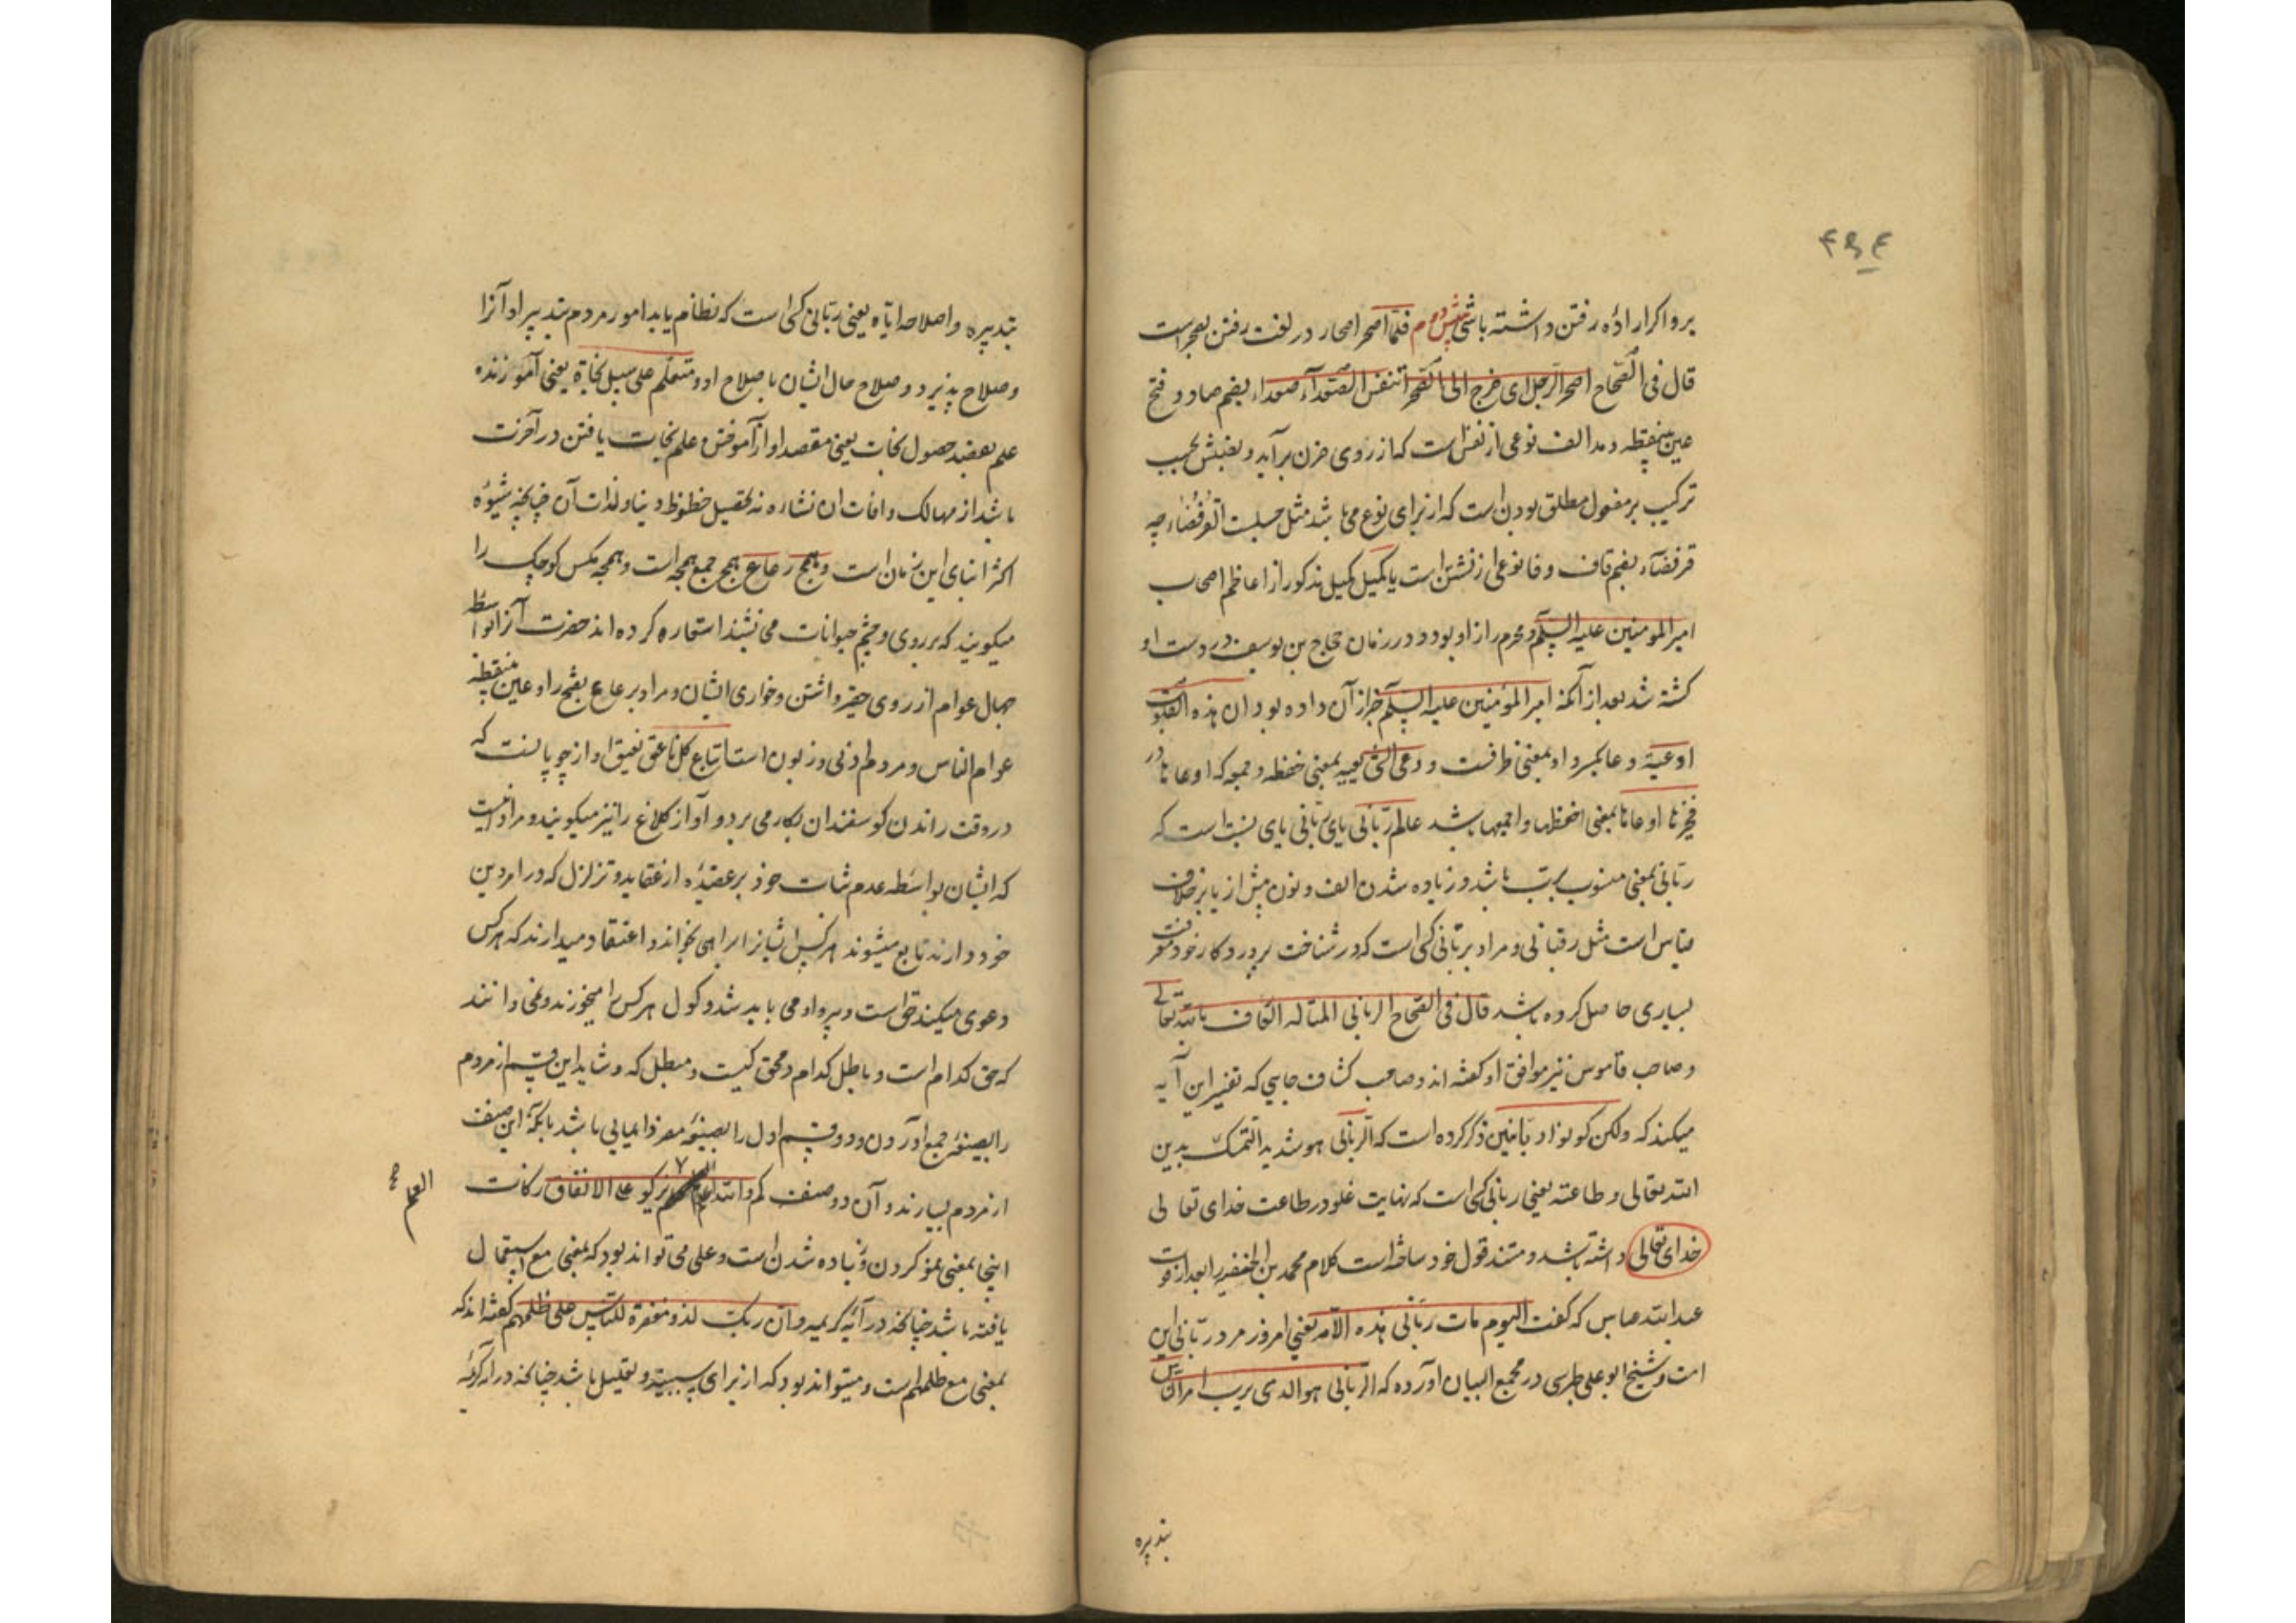 ۴۹۴
برو اگر ارادهٔ رفتن داشته باشی فلمّا اصحر اصحار در لغت رفتن بصحراست
قال فی الصّحاح اصحر الرّجل ای خرج الی الصّحراء تنفّس الصّعداء صعداء بضم صاد و فتح
عین بینقطه و مد الف نوعی از نفس است که از روی حزن برآید و نصبش بحسب
ترکیب بر مفعول مطلق بودن است که از برای نوع می باشد مثل جلست القرفصاء چه
قرفصاء بضم قاف و فا نوعی از نشستن است یا کمیل کمیل مذکور از اعاظم اصحاب
امیر المومنین علیه السّلم و محرم راز او بود و در زمان حجاج بن یوسف در دست او
کشته شد بعد از آنکه امیر المؤمنین علیه السّلم خبر از آن داده بود ان هذه القلوب
اوعیة وعا بکسر واو بمعنی ظرفست و وعی الشی یعیه بمعنی حفظه و جمعه که اوعاها در
فخیرها اوعاها بمعنی احفظها و اجمعها باشد عالم ربّانی یای ربّانی یای نسبت است که
ربّانی بمعنی منسوب بربّ باشد و زیاده شدن الف و نون پیش از یا بر خلاف
قیاس است مثل رقبانی و مراد بربّانی کسی است که در شناخت پروردکار خود معرفت
بسیاری حاصل کرده باشد قال فی الصّحاح الربانی المتاله العارف بالله تعالی
و صاحب قاموس نیز موافق او کفته اند و صاحب کشاف جایی که تفسیر این آیه
میکند که ولکن کونوا ربّانیین ذکر کرده است که الرّبانی هو شدید التمسّک بدین
الله تعالی و طاعته یعنی ربانی کسی است که نهایت غلو در طاعت خدای تعالی
خدای تعالی داشته باشد و مستند قول خود ساخته است کلام محمد بن الحنفیه را بعد از فوت
عبدالله عباس که کفت الیوم مات ربّانی هذه الامّة یعنی امروز مرد ربّانی این
امت و شیخ ابو علی طبرسی در مجمع البیان آورده که الرّبّانی هو الذی یربّ امر النّاس
بتدبیره
بتدبیره و اصلاحه ایاه یعنی ربّانی کسی است که نظام یابد امور مردم بتدبیر او آنرا
و صلاح پذیرد و صلاح حال ایشان باصلاح او و متعلّم علی سبیل نجاة یعنی آموزنده
علم بقصد حصول نجات یعنی مقصد او از آموختن علم نجات یافتن در آخرت
باشد از مهالک و افات ان نشاه نه تحصیل حظوظ دنیا و لذات آن چنانچه شیوهٔ
اکثر ابنای این زمان است و همج رعاع همج جمع همجه است و همجه مکس کوچک را
میکویند که بر روی و چشم حیوانات می نشیند استعاره کرده اند حضرت آنرا بواسطهٔ
جهال عوام از روی حقیر داشتن و خواری ایشان و مراد بر عاع بفتح را و عین بینقطه
عوام الناس و مردم دنی و زبون است اتباع کل ناعق نعیق اواز چوپانست که
در وقت راندن کوسفندان بکار می برد و آواز کلاغ را نیز میکویند و مراد اینست
که ایشان بواسطه عدم ثبات خود بر عقیدهٔ از عقاید و تزلزل که در امر دین
خود دارند تابع میشوند هر کس ایشانرا براهی بخواند و اعتقاد میدارند که هر کس
دعوی میکند حق است و پیرو او می باید شد و کول هر کس را میخورند و نمی دانند
که حق کدام است و باطل کدام و محق کیست و مبطل که و شاید این قسم از مردم
را بصیغهٔ جمع آوردن و دو قسم اول را بصیغهٔ مفرد ایمایی باشد بانکه این صنف
از مردم بسیارند و آن دو صنف کم و الله اعلم العلم یزکو علی الانفاق زکات
العلم صح
اینجا بمعنی نمو کردن و زیاده شدن است و علی می تواند بود که بمعنی مع استعمال
یافته باشد چنانچه در آیهٔ کریمه و ان ربک لذو مغفرة للنّاس علی ظلمهم کفته اند که
بمعنی مع ظلمهم است و میتواند بود که از برای سببیه و تعلیل باشد چنانکه در آیه کریمه